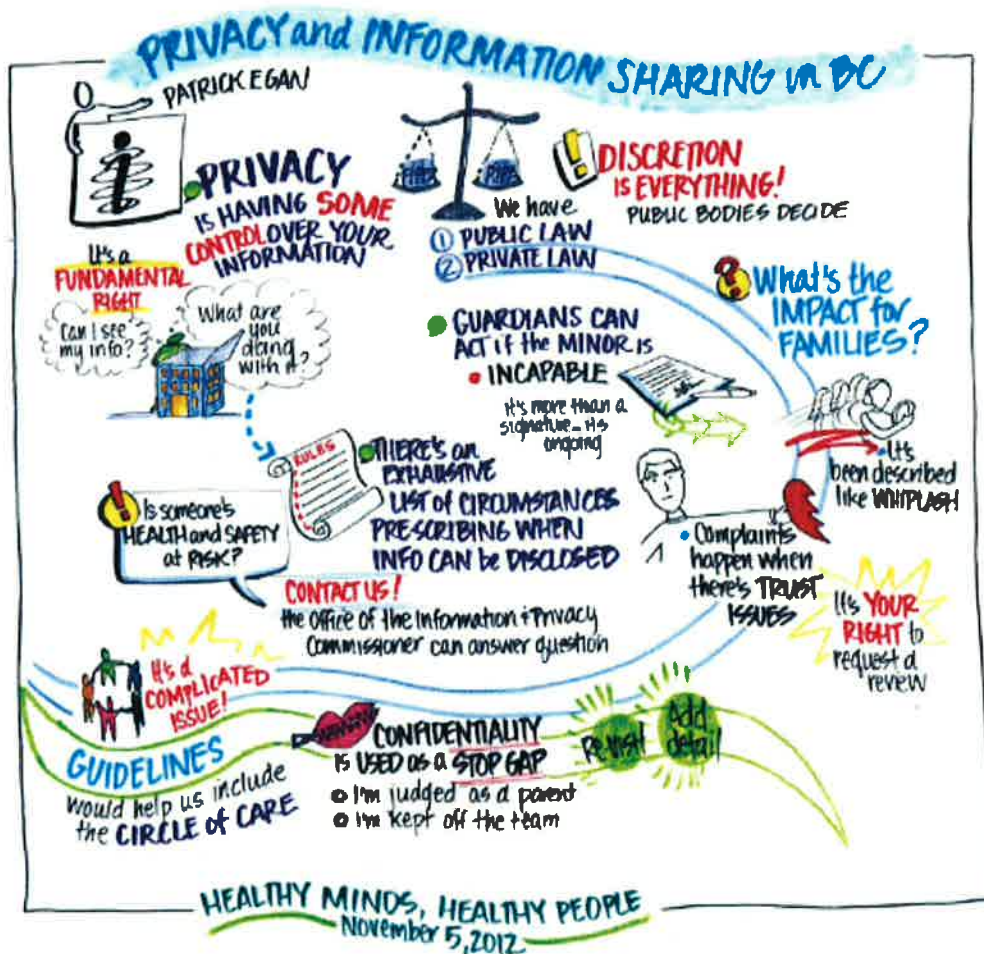 PRIVACY and INFORMATION SHARING in BC
PATRICK EGAN
i
PRIVACY
IS HAVING SOME
CONTROL OVER YOUR
INFORMATION
It's a
FUNDAMENTAL
RIGHT
Can I see
my info?
What are
you
doing
with it?
We have
① PUBLIC LAW
② PRIVATE LAW
DISCRETION
IS EVERYTHING!
PUBLIC BODIES DECIDE
What's the
IMPACT for
FAMILIES?
GUARDIANS CAN
ACT if the MINOR is
• INCAPABLE
it's more than a
signature - it's
ongoing
• It's
been described
like WHIPLASH
RULES
THERE'S an
EXHAUSTIVE
LIST of CIRCUMSTANCES
PRESCRIBING WHEN
INFO CAN be DISCLOSED
Is someone's
HEALTH and SAFETY
at RISK?
CONTACT US!
the Office of the Information + Privacy
Commissioner can answer question
• Complaints
happen when
there's TRUST
ISSUES
It's YOUR
RIGHT to
request a
review
It's a
COMPLICATED
ISSUE!
GUIDELINES
would help us include
the CIRCLE of CARE
CONFIDENTIALITY
IS USED as a STOP GAP
o I'm judged as a parent
o I'm kept off the team
Revisit
Add
detail
HEALTHY MINDS, HEALTHY PEOPLE
November 5, 2012